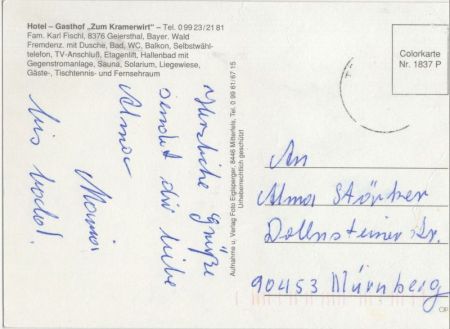 Hotel – Gasthof „Zum Kramerwirt“ – Tel. 0 99 23/21 81
Fam. Karl Fischl, 8376 Geiersthal, Bayer. Wald
Fremdenz. mit Dusche, Bad, WC, Balkon, Selbstwähl-
telefon, TV-Anschluß, Etagenlift, Hallenbad mit
Gegenstromanlage, Sauna, Solarium, Liegewiese,
Gäste-, Tischtennis- und Fernsehraum
Colorkarte
Nr. 1837 P
Herzliche Grüße
sendet dir liebe
Alma
Mama
bis bald!
Aufnahme u. Verlag Foto Eiglsperger, 8446 Mitterfels, Tel. 0 99 61/67 15
Urheberrechtlich geschützt
An
Alma
Dollnsteiner Str.
90453 Nürnberg